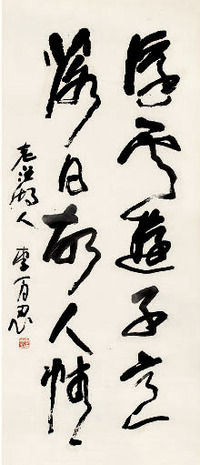 浮雲遊子意
落日故人情
老 人 李百忍